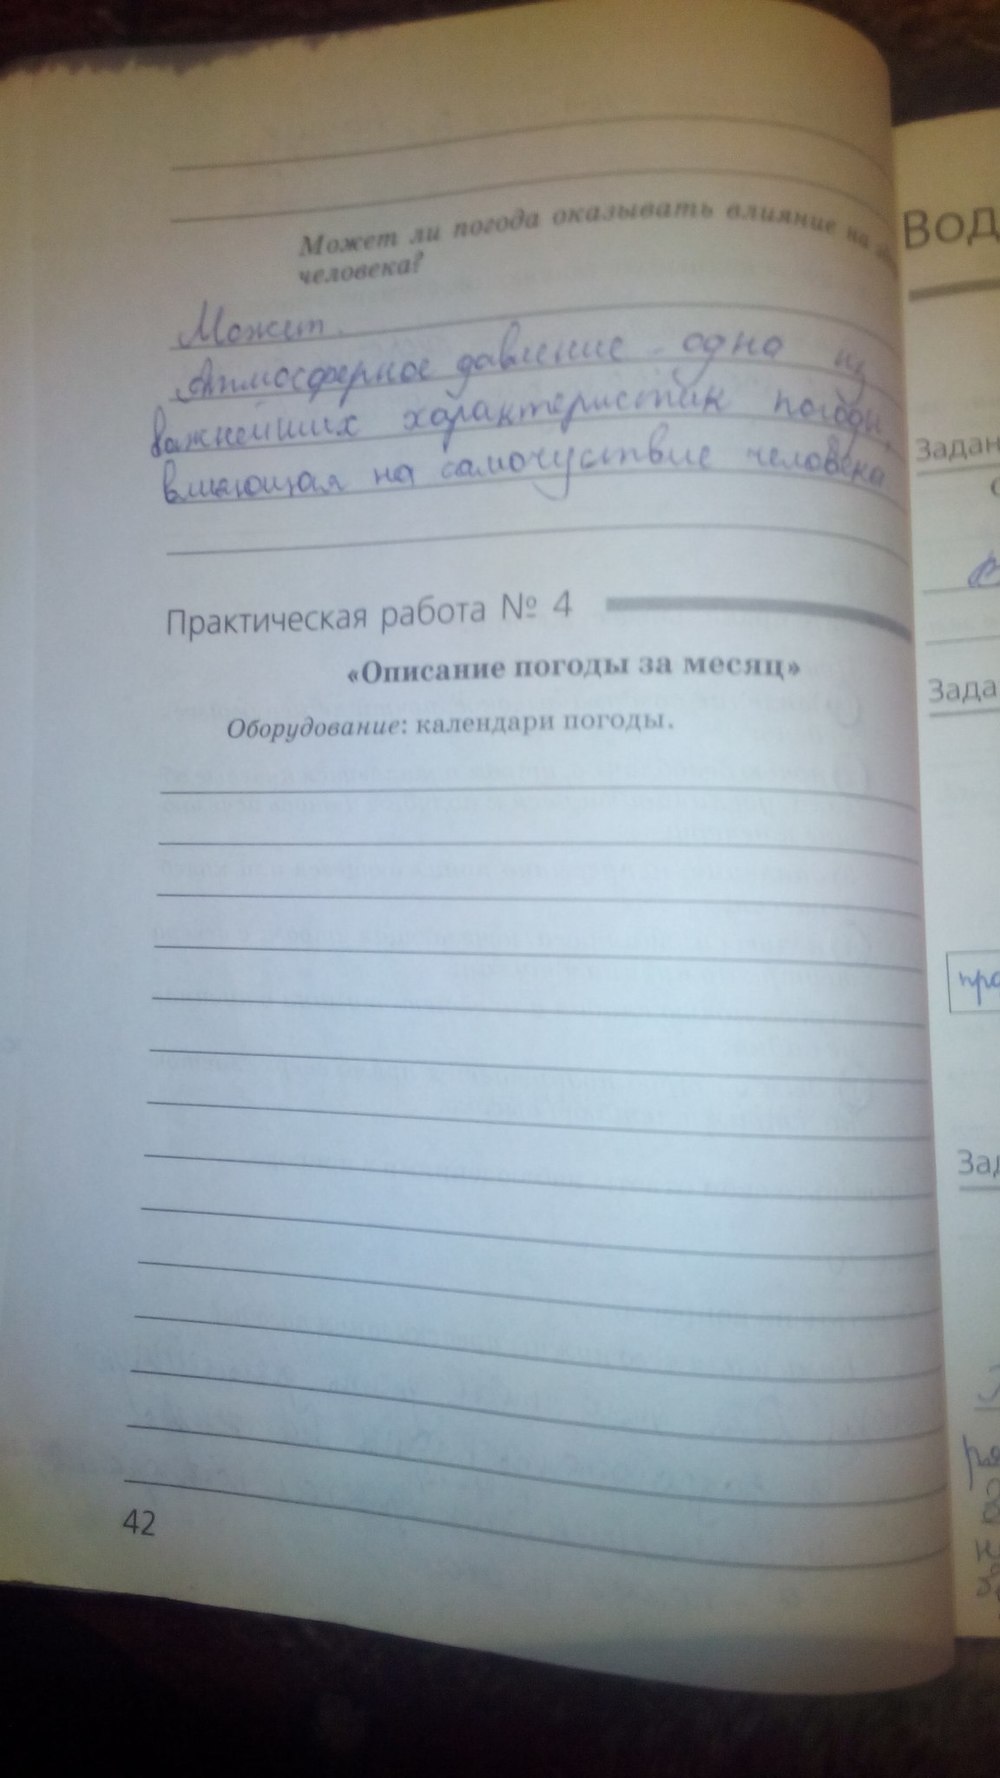 Может ли погода оказывать влияние на
человека?
Может.
Атмосферное давление - одна из
важнейших характеристик погоды,
влияющая на самочуствие человека
Практическая работа № 4
«Описание погоды за месяц»
Оборудование: календари погоды.
42
Вод
Задан
Зада
про
Зад